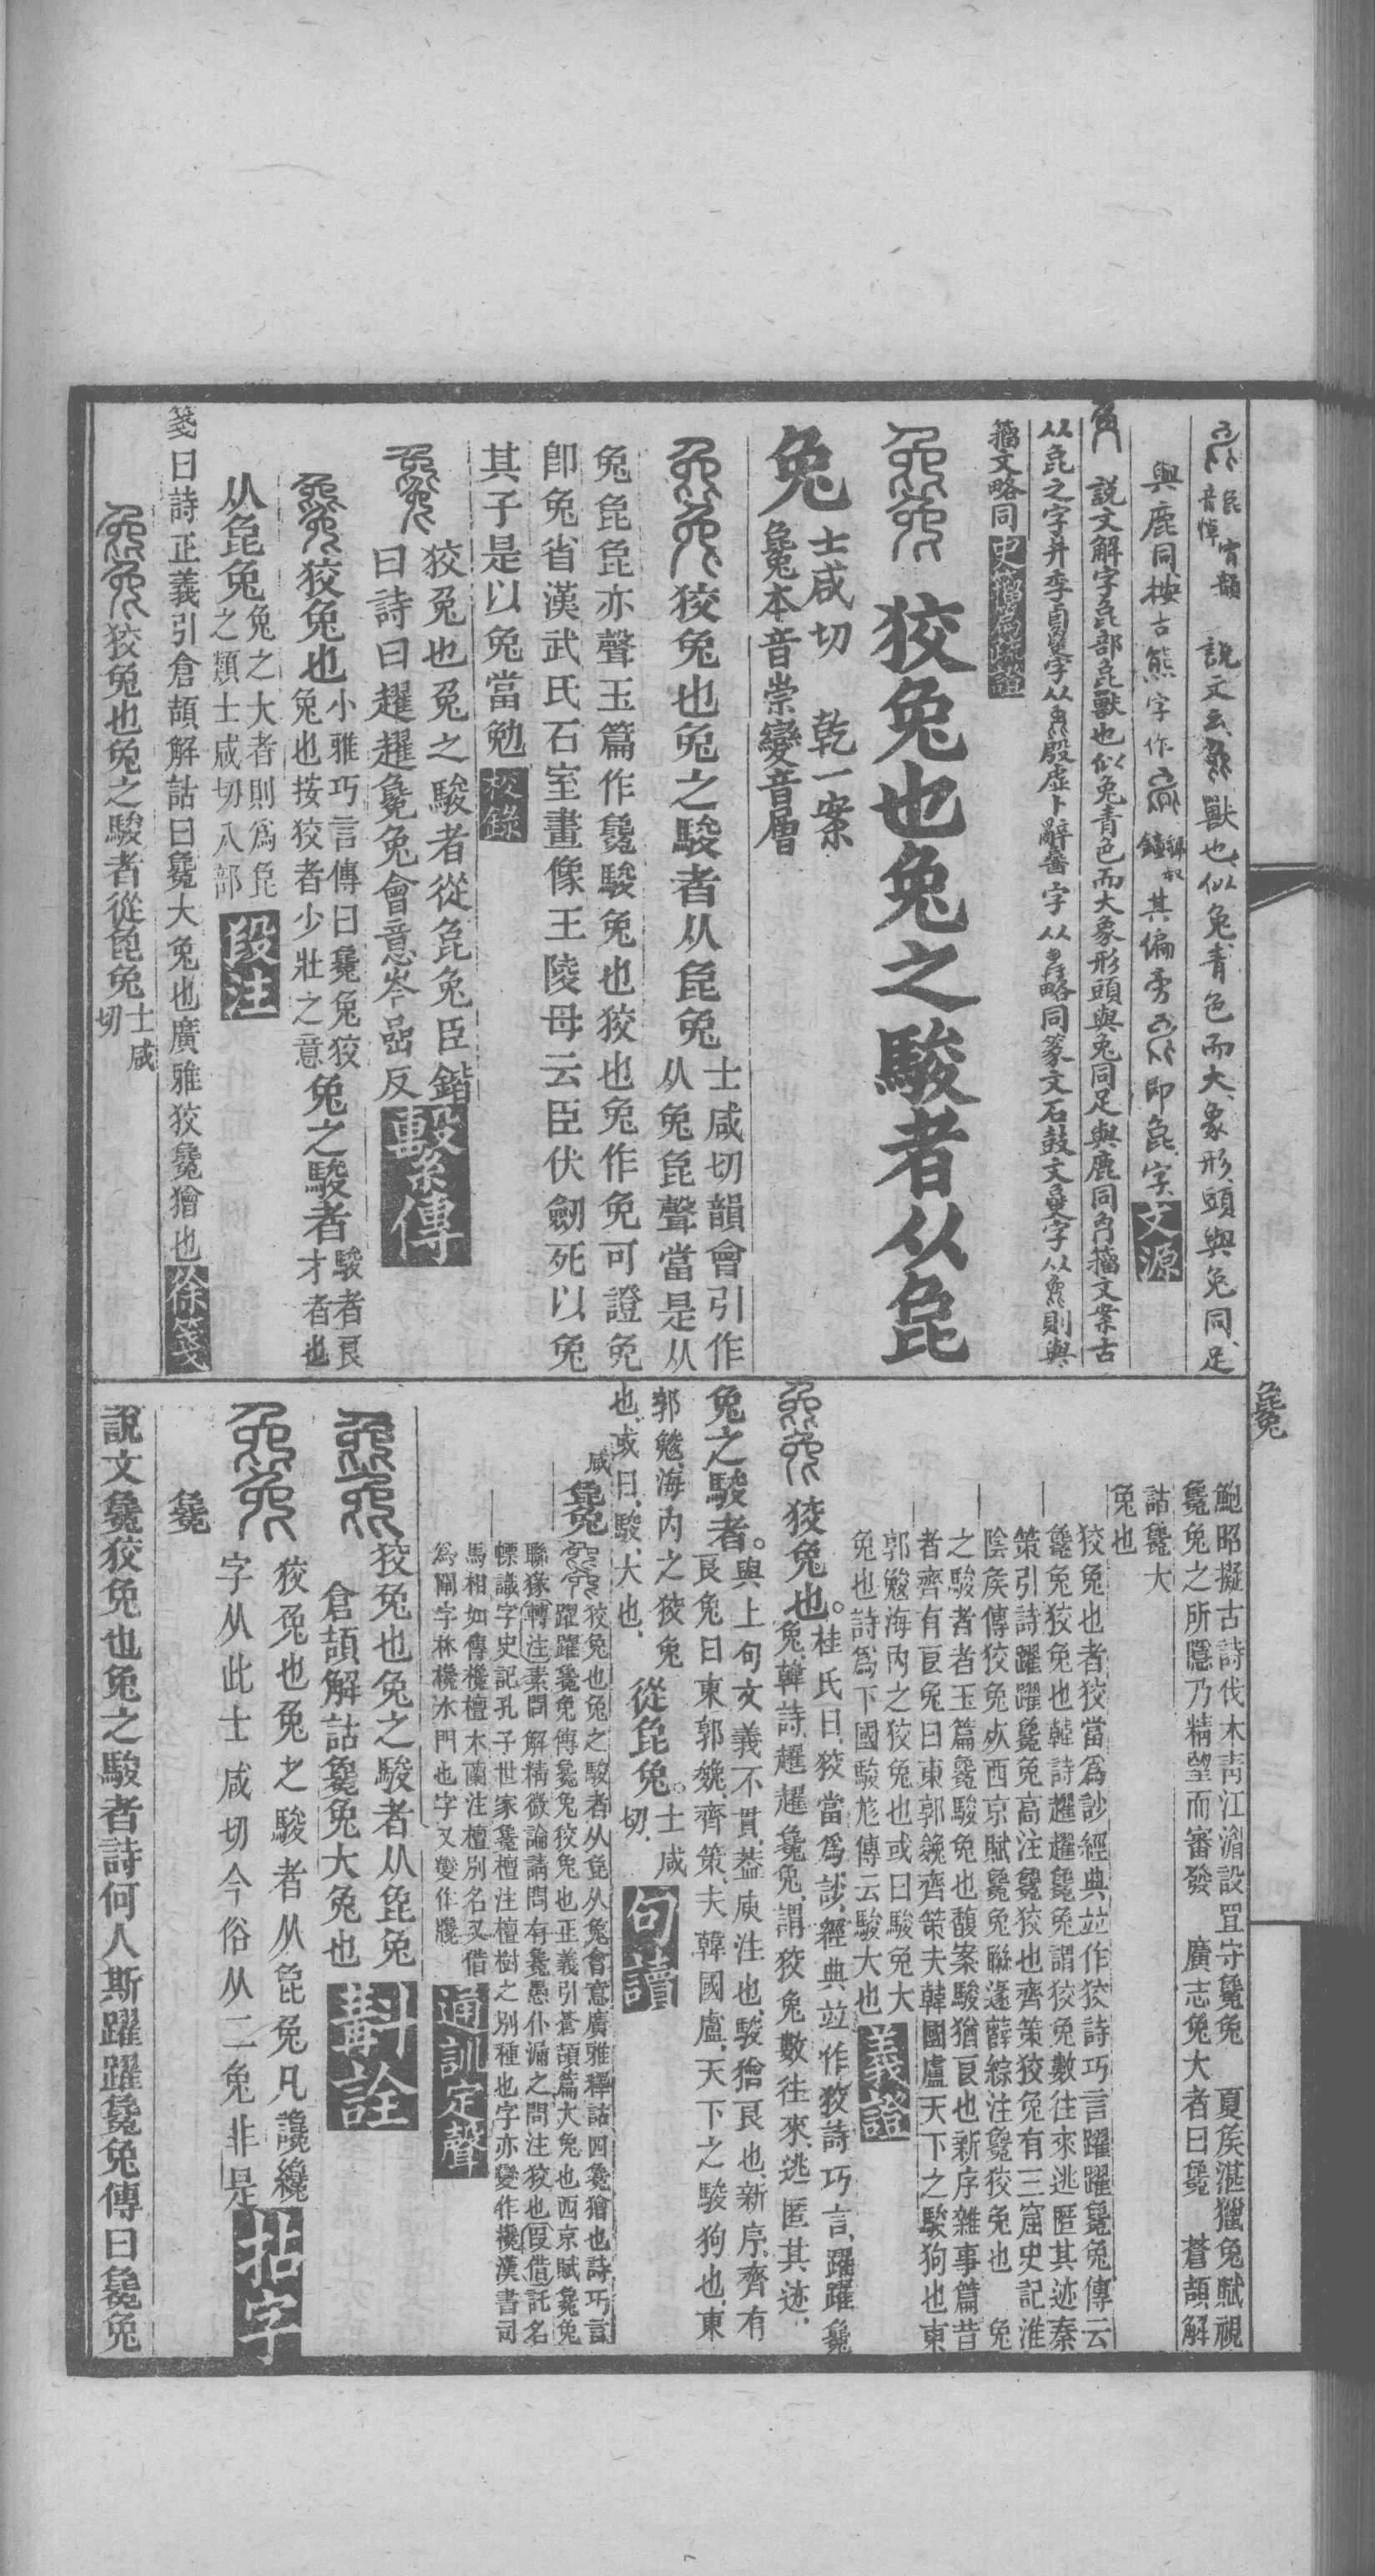 㲋 宵韻
音悼
說文云㲋獸也似兔青色而大象形頭與兔同足
與鹿同按古熊字作 其偏旁 即㲋字 文源
說文解字㲋部㲋獸也似兔青色而大象形頭與兔同足與鹿同 籀文案古
籀文略同 史籀篇疏證
狡兔也兔之駿者从㲋
兔 士咸切 乾一案
毚本音崇變音層
狡兔也兔之駿者从㲋兔 士咸切韻會引作
从兔㲋聲當是从
兔㲋㲋亦聲玉篇作毚駿兔也狡也兔作免可證免
卽兔省漢武氏石室畫像王陵母云臣伏劒死以兔
其子是以兔當勉 校錄
狡兔也兔之駿者從㲋兔臣鍇
曰詩曰趯趯毚兔會意岑嵒反 繫傳
狡兔也 小雅巧言傳曰毚兔狡
兔也按狡者少壯之意 兔之駿者 駿者良
才者也
从㲋兔 兔之大者則爲㲋
之類士咸切八部 段注
箋曰詩正義引倉頡解詁曰毚大兔也廣雅狡毚獪也 徐箋
狡兔也兔之駿者從㲋兔 士咸
切
毚
鮑昭擬古詩伐木淸江湄設罝守毚兔 夏矦湛獵兔賦視
毚兔之所隱乃精望而審發 廣志兔大者曰毚 蒼頡解
詁毚大
兔也
狡兔也者狡當爲訬經典竝作狡詩巧言躍躍毚兔傳云
毚兔狡兔也韓詩趯趯毚兔謂狡兔數往來逃匿其迹秦
策引詩躍躍毚兔高注毚狡也齊策狡兔有三窟史記淮
陰矦傳狡兔死西京賦毚兔聯遙薛綜注毚狡兔也 兔
之駿者者玉篇毚駿兔也馥案駿猶良也新序雜事篇昔
者齊有良兔曰東郭㕙齊策夫韓國盧天下之駿狗也東
郭㕙海內之狡兔也或曰駿兔大
兔也詩爲下國駿厖傳云駿大也 義證
狡兔也。桂氏曰、狡當爲訬、經典竝作狡、詩巧言、躍躍毚
兔、韓詩、趯趯毚兔、謂狡兔數往來、逃匿其迹、
兔之駿者。與上句文義不貫、葢庾注也、駿猶良也、新序、齊有
良兔曰東郭㕙、齊策、夫韓國盧、天下之駿狗也、東
郭㕙、海內之狡兔
也、或曰、駿、大也、 從㲋兔。士咸
切、 句讀
咸
毚 狡兔也兔之駿者从㲋从兔會意廣雅釋詁四毚獪也詩巧言
躍躍毚兔傳毚兔狡兔也正義引蒼頡篇大兔也西京賦毚兔
聯猭 轉注 素問解精微論請問有毚愚仆漏之問注狡也 叚借 託名
幖識字史記孔子世家毚檀注檀樹之別種也字亦變作欃漢書司
馬相如傳欃檀木蘭注檀別名又借
爲閘字林欃水門也字又變作㡪 通訓定聲
狡兔也兔之駿者从㲋兔
倉頡解詁毚兔大兔也 斠詮
狡兔也兔之駿者从㲋兔凡讒纔
字从此士咸切今俗从二兔非是 拈字
毚
說文毚狡兔也兔之駿者詩何人斯躍躍毚兔傳曰毚兔